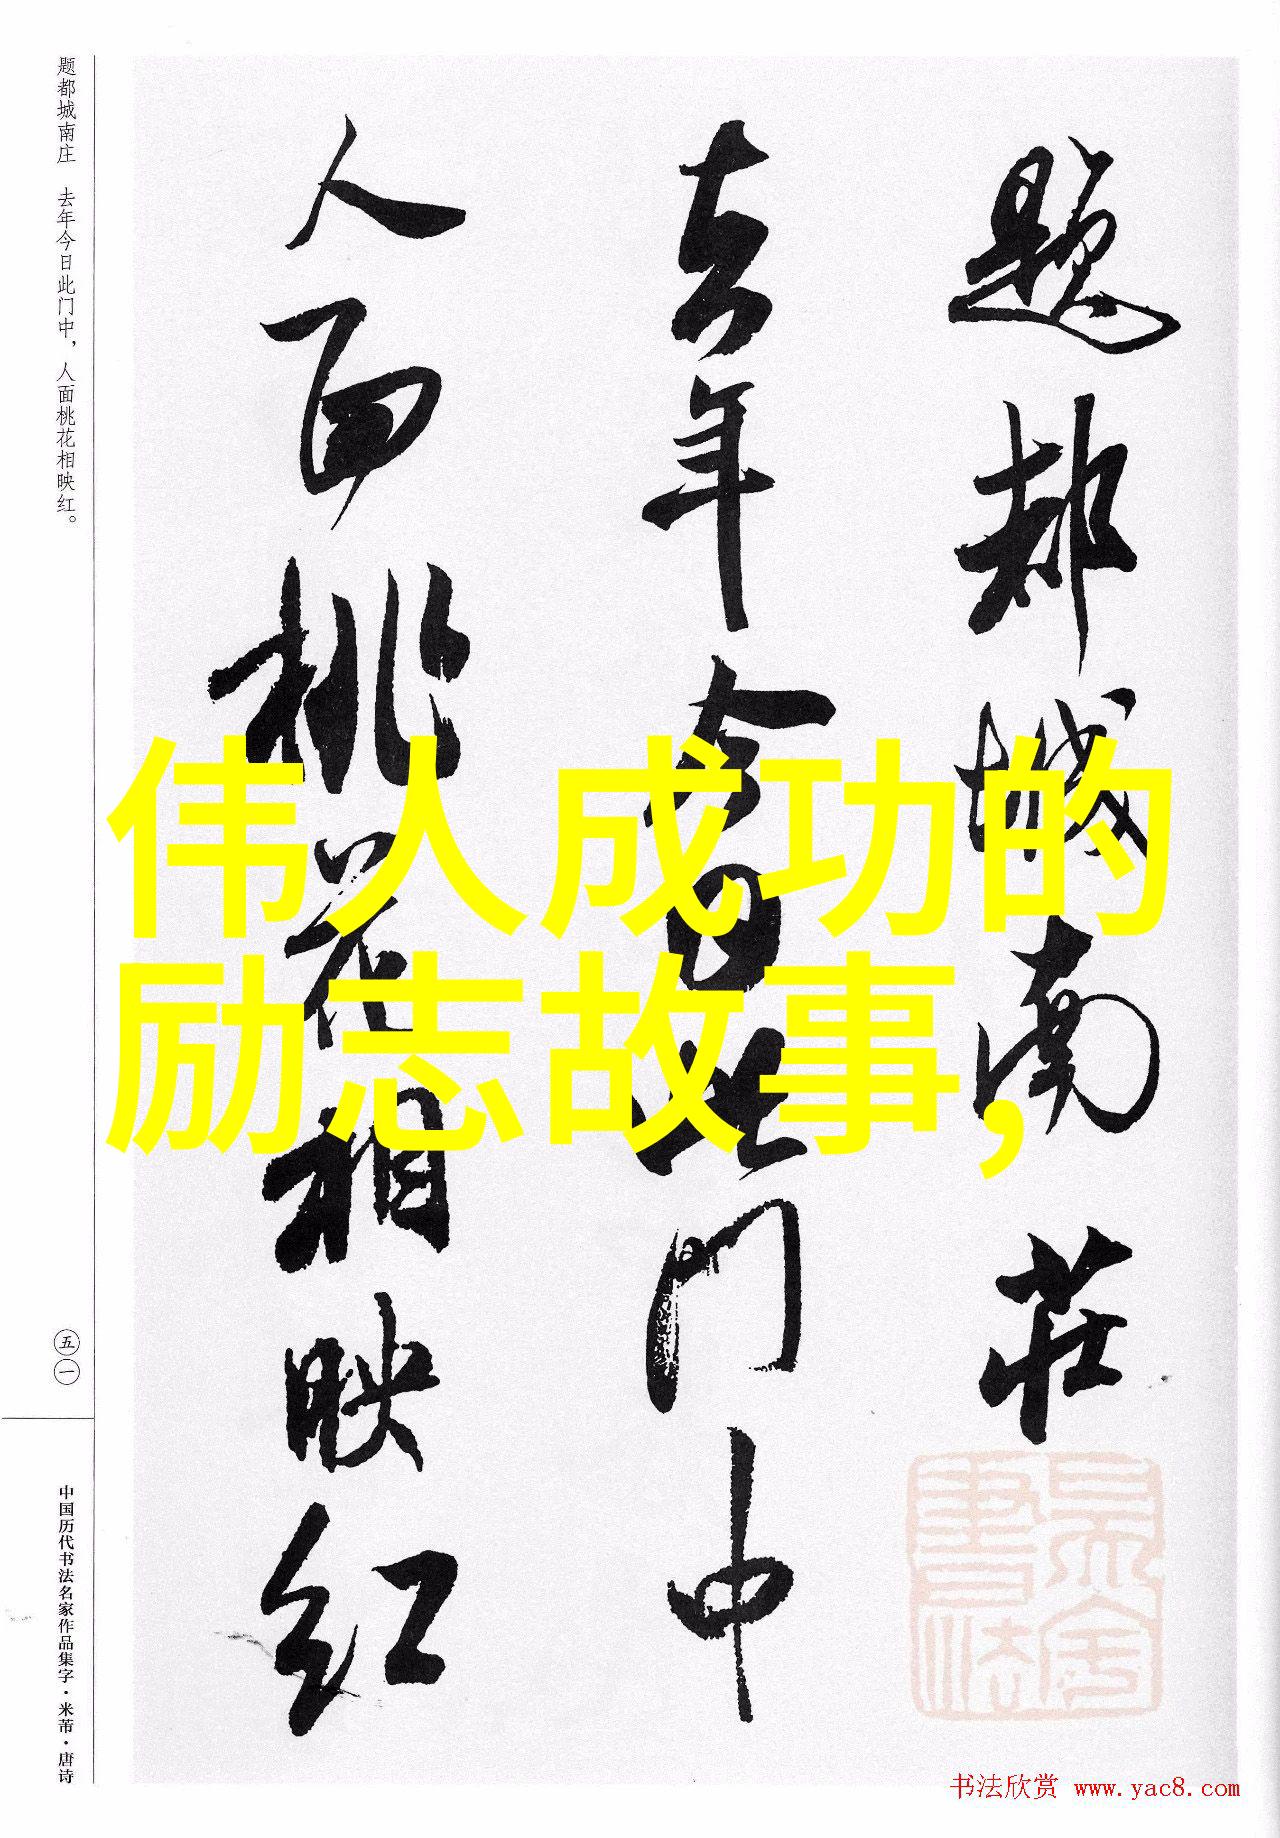 题都城南莊
去年今日此门中
人面桃花相映红
伟人成功的
励志故事,
题都城南庄 去年今日此门中，人面桃花相映红。
五一
中国历代书法名家作品集字·米芾·唐诗
书法欣赏 www.yac8.com